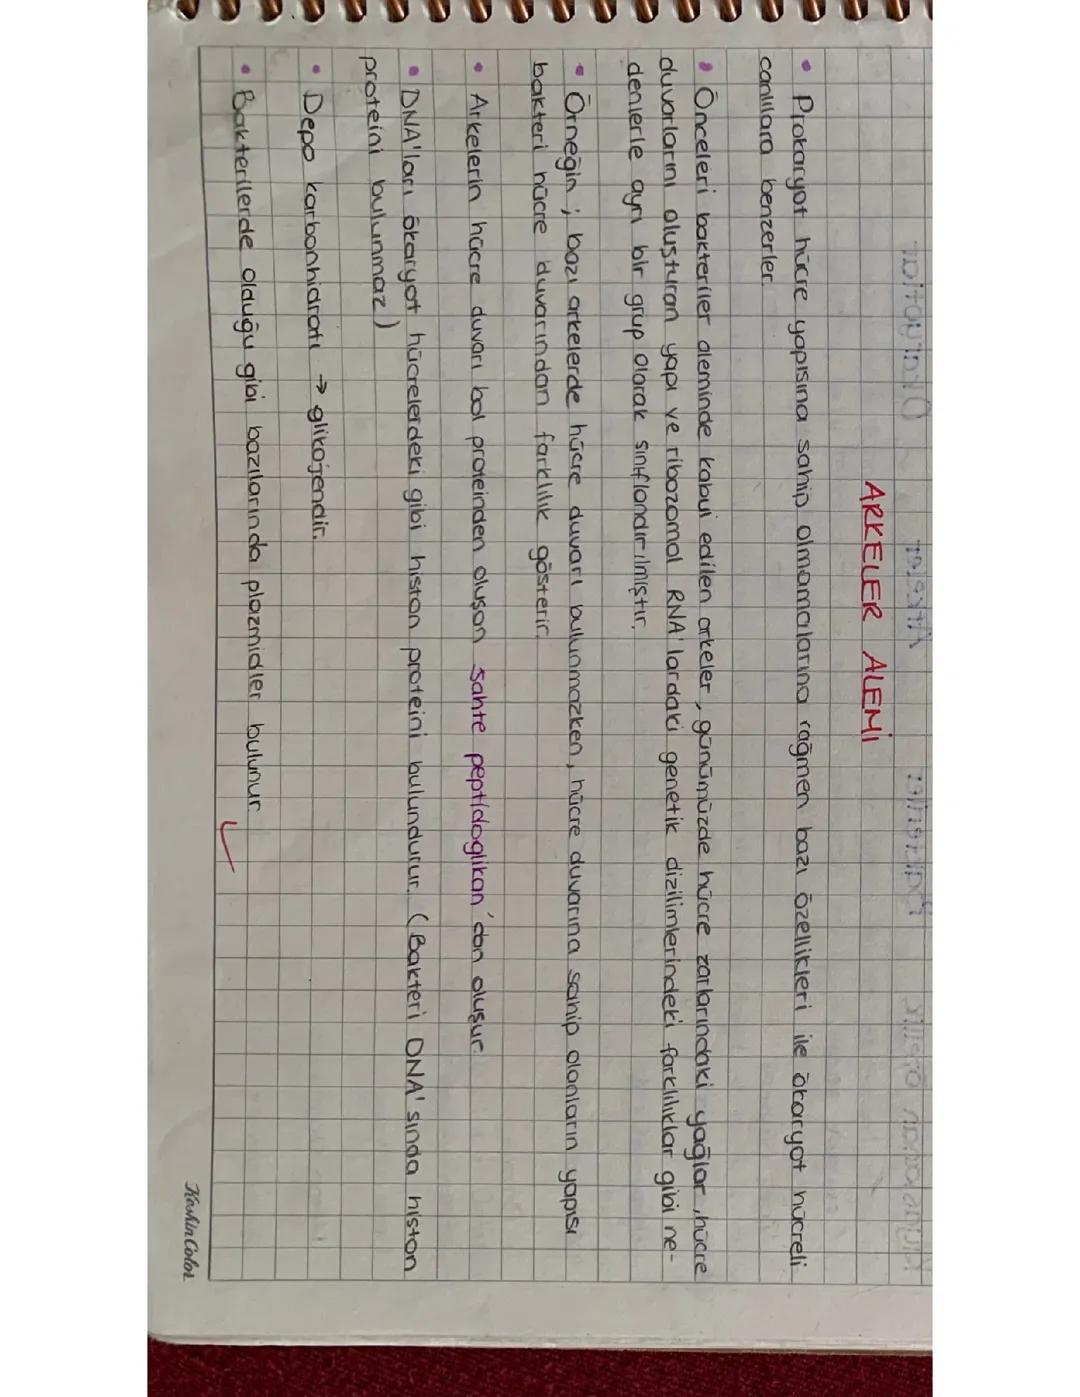 ARKELER ALEMİ
• Prokaryot hücre yapısına sahip olmamalarına rağmen bazı özellikleri ile ökaryot hücreli
canlılara benzerler.
• Önceleri bakteriler aleminde kabul edilen arkeler, günümüzde hücre zarlarındaki yağlar, hücre
duvarlarını oluşturan yapı ve ribozomal RNA'lardaki genetik dizilimlerindeki farklılıklar gibi ne-
denlerle ayrı bir grup olarak sınıflandırılmıştır.
• Örneğin; bazı arkelerde hücre duvarı bulunmazken, hücre duvarına sahip olanların yapısı
bakteri hücre duvarından farklılık gösterir.
• Arkelerin hücre duvarı bol proteinden oluşan sahte peptidoglikan'dan oluşur.
• DNA'ları ökaryot hücrelerdeki gibi histon proteini bulundurur. (Bakteri DNA'sında histon
proteini bulunmaz)
• Depo karbonhidratı → glikojendir.
• Bakterilerde olduğu gibi bazılarında plazmidler bulunur
KeskinColor